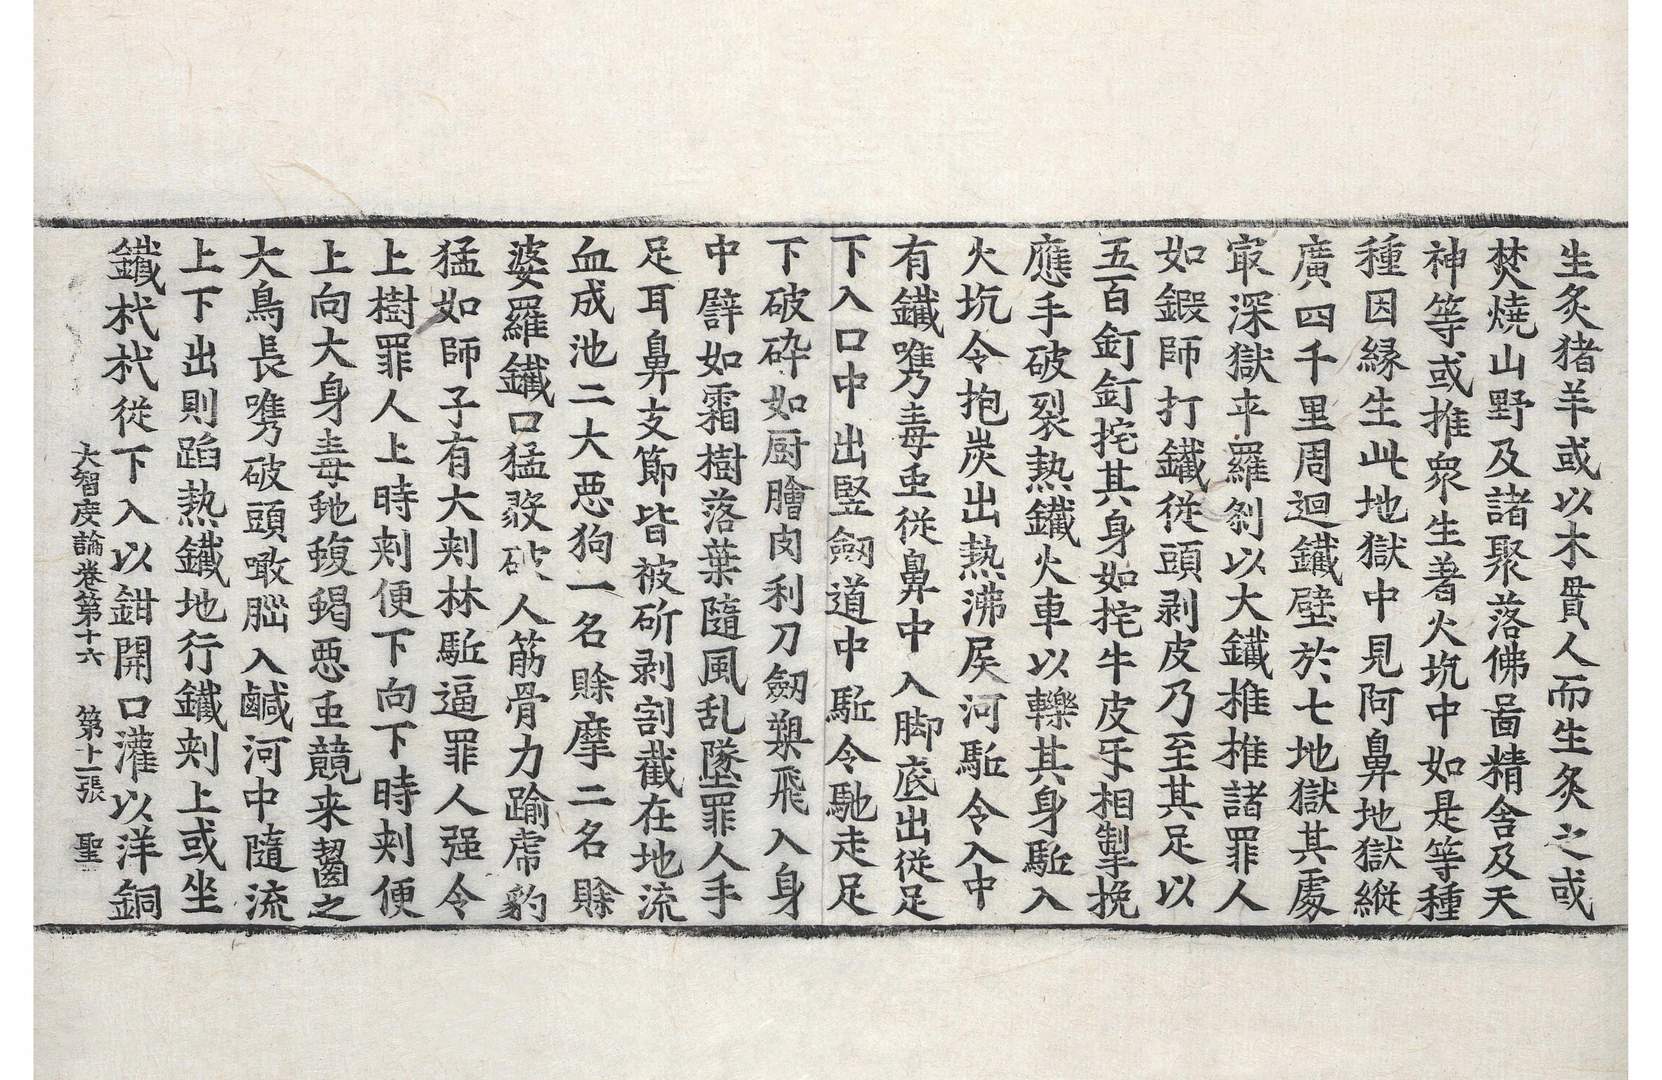 生炙猪羊或以木貫人而生炙之或
焚燒山野及諸聚落佛啚精舍及天
神等或推衆生著火坑中如是等種
種因緣生此地獄中見阿鼻地獄縱
廣四千里周迴鐵壁於七地獄其處
㝡深獄卒羅剎以大鐵椎椎諸罪人
如鍛師打鐵從頭剥皮乃至其足以
五百釘釘挓其身如挓牛皮㸦相掣挽
應手破裂熱鐵火車以轢其身駈入
火坑令抱炭出熱沸屎河駈令入中
有鐵㗫毒虫從鼻中入脚底出從足
下入口中出竪劒道中駈令馳走足
下破碎如厨膾肉利刀劒槊飛入身
中譬如霜樹落葉隨風乱墜罪人手
足耳鼻支節皆被斫剥割截在地流
血成池二大惡狗一名賒摩二名賒
婆羅鐵口猛毅破人筋骨力踰虎豹
猛如師子有大刾林駈逼罪人强令
上樹罪人上時刾便下向下時刾便
上向大身毒虵蝮蝎惡虫競来齧之
大鳥長㗫破頭噉𦛁入鹹河中隨流
上下出則蹈熱鐵地行鐵刾上或坐
鐵杙杙從下入以鉗開口灌以洋銅
大智度論卷第十六 第十一張 聖